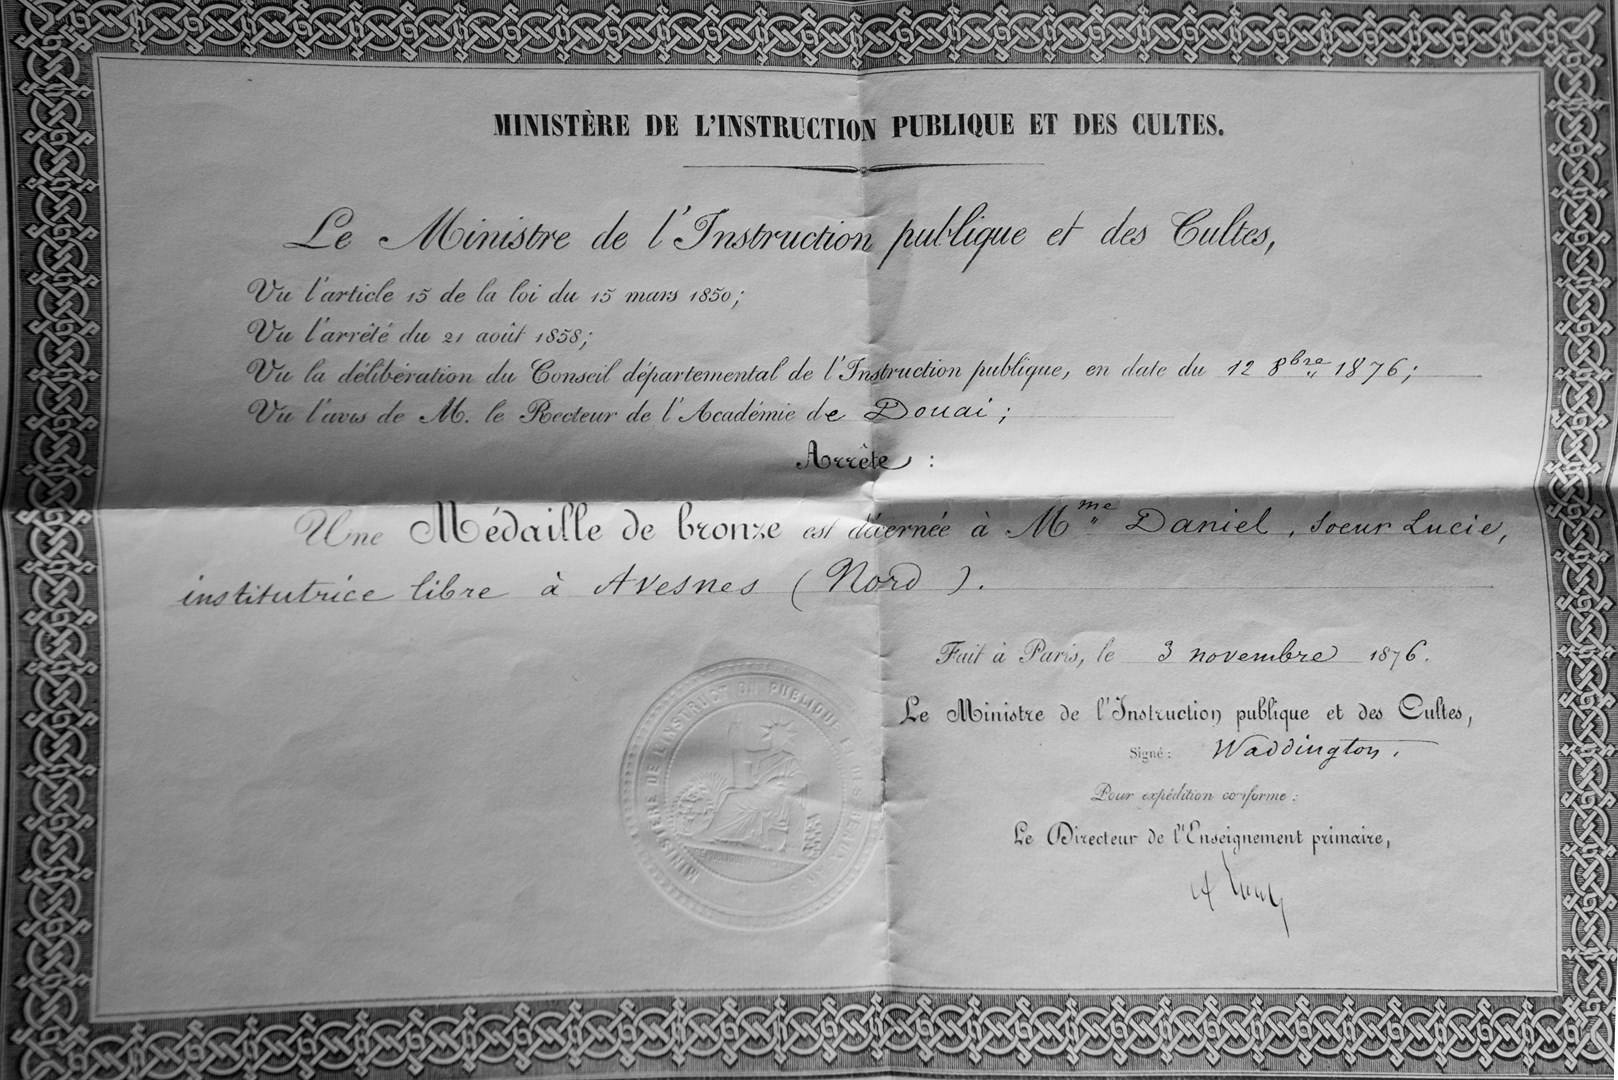 MINISTÈRE DE L'INSTRUCTION PUBLIQUE ET DES CULTES.
Le Ministre de l'Instruction publique et des Cultes,
Vu l'article 15 de la loi du 15 mars 1850;
Vu l'arrêté du 21 août 1858;
Vu la délibération du Conseil départemental de l'Instruction publique, en date du 12 8bre 1876;
Vu l'avis de M. le Recteur de l'Académie de Douai;
Arrête :
Une Médaille de bronze est décernée à Mme Daniel, Soeur Lucie,
institutrice libre à Avesnes (Nord).
Fait à Paris, le 3 novembre 1876.
Le Ministre de l'Instruction publique et des Cultes,
Signé : Waddington.
Pour expédition conforme :
Le Directeur de l'Enseignement primaire,
MINISTÈRE DE L'INSTRUCTION PUBLIQUE ET DES